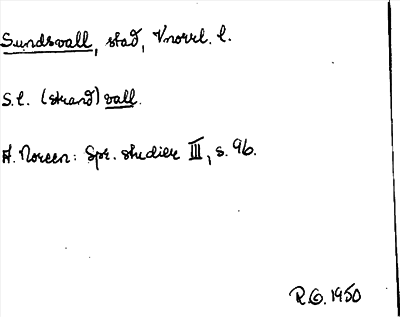 Sundsvall, stad, Vnorrl. l.
S.l. (strand) vall.
A. Noreen: Spr. studier III, s. 96.
R.G. 1950